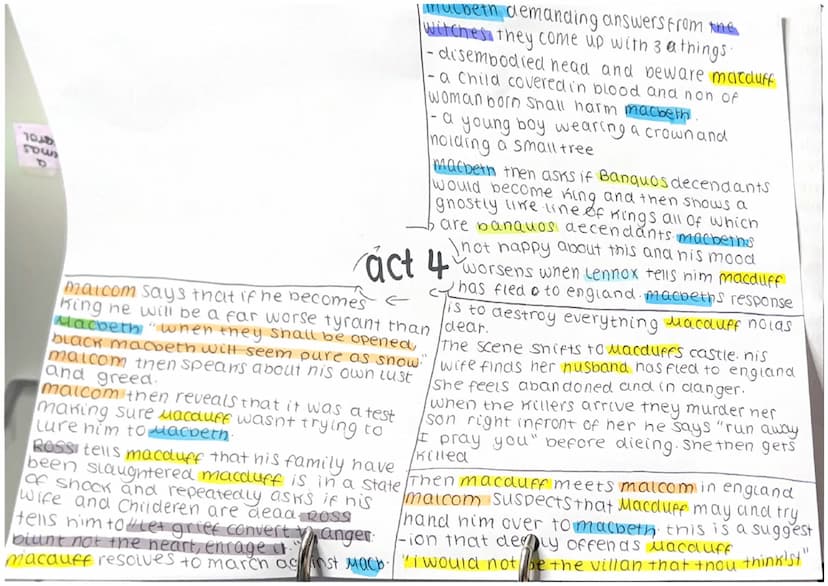 macbeth demanding answers from the
witches they come up with 3 things.
- disembodied head and beware macduff
- a child covered in blood and non of
woman born shall harm macbeth.
- a young boy wearing a crown and
holding a small tree
macbeth then asks if Banquos decendants
would become King and then shows a
ghostly like line of kings all of which
are banquos decendants macbeths
not happy about this and his mood
worsens when Lennox tells him macduff
has fled to england. macbeths response
is to destroy everything Macduff holds
dear.
The scene shifts to Macduffs castle. his
wife finds her husband has fled to england
she feels abandoned and in danger.
when the killers arrive they murder her
son right infront of her he says "run away
I pray you" before dieing. She then gets
killed
Then macduff meets malcom in england
malcom suspects that Macduff may and try
hand him over to macbeth. this is a suggest
-ion that deeply offends Macduff
"I would not be the villan that thou thinks!"
act 4
malcom says that if he becomes
King he will be a far worse tyrant than
Macbeth "when they shall be opened,
black macbeth will seem pure as snow"
malcom then speaks about his own lust
and greed.
malcom then reveals that it was a test
making sure Macduff wasnt trying to
lure him to Macbeth.
ROSS tells macduff that his family have
been slaughtered macduff is in a state
of shock and repeatedly asks if his
wife and Childeren are dead. ROSS
tells him to "Let grief convert to anger.
blunt not the heart, enrage it."
macduff resolves to march against Macb